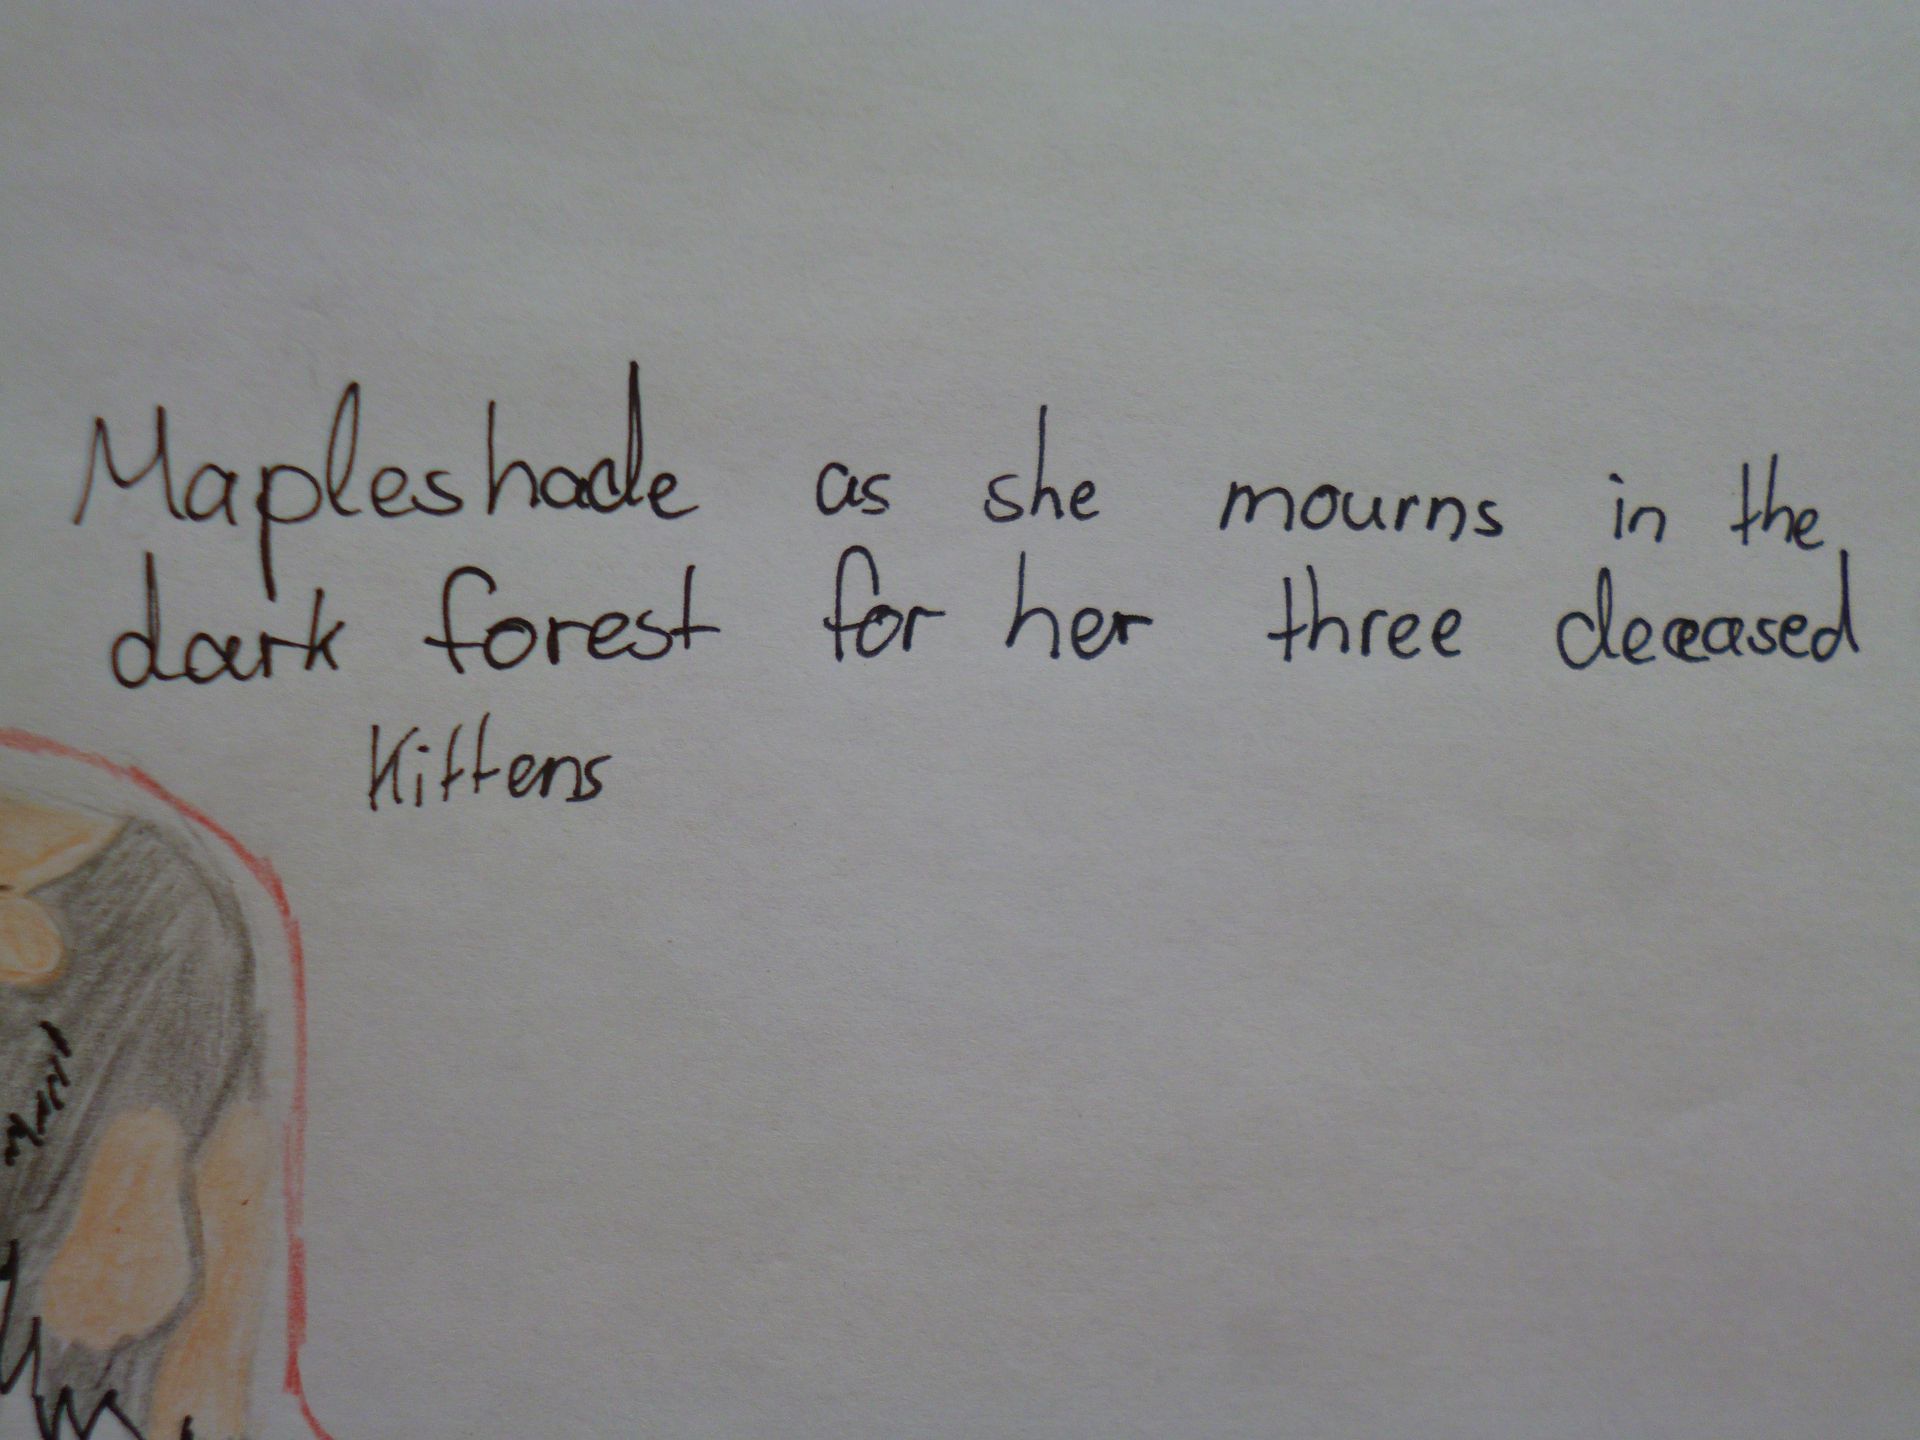 Mapleshade as she mourns in the
dark forest for her three deceased
Kittens